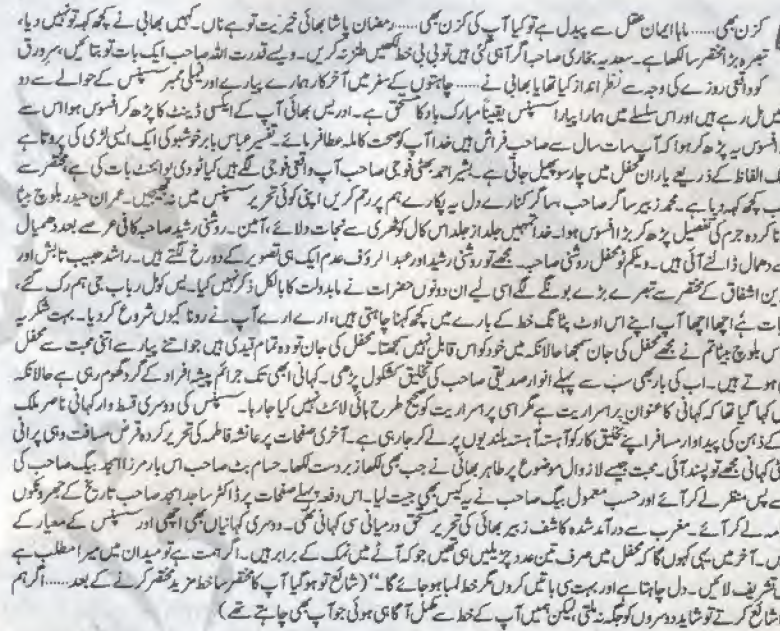 کزن بھی..... ماہا ایمان عقل سے پیدل ہے تو کیا آپ کی کزن بھی..... رمضان پاشا بھائی خیریت تو ہے ناں۔ کہیں بھابی نے کچھ کہہ تو نہیں دیا،
تبصرہ بڑا مختصر سا لکھا ہے۔ سعدیہ بخاری صاحبہ اگر آ ہی گئی ہیں تو بی بی خط لکھیں طنز نہ کریں۔ ویسے قدرت اللہ صاحب ایک بات تو بتائیں، سرورق
کو واقعی روزے کی وجہ سے نظر انداز کیا تھا یا بھابی نے..... چاہتوں کے سفر میں آخر کار ہمارے پیارے اور فیملی ممبر سسپنس کے حوالے سے دو
مل رہے ہیں اور اس سلسلے میں ہمارا پیارا سسپنس یقیناً مبارک باد کا مستحق ہے۔ ادریس بھائی آپ کے ایکسی ڈینٹ کا پڑھ کر افسوس ہوا اس سے
افسوس یہ پڑھ کر ہوا کہ آپ سات سال سے صاحب فراش ہیں خدا آپ کو صحت کاملہ عطا فرمائے۔ تفسیر عباس بابر خوشبو کی ایک ایسی لڑی کی پروتا ہے
الفاظ کے ذریعے یاران محفل میں چار سو پھیل جاتی ہے۔ بشیر احمد بھٹی فوجی صاحب آپ واقعی فوجی لگے ہیں کیا ٹو دی پوائنٹ بات کی ہے مختصر سے
کچھ کہہ دیا ہے۔ محمد زبیر ساگر صاحب، ہما گر کنارے دل یہ پکارے ہم پر رحم کریں اپنی کوئی تحریر سسپنس میں نہ بھیجیں۔ عمران حیدر بلوچ بیٹا
کردہ جرم کی تفصیل پڑھ کر بڑا افسوس ہوا۔ خدا تمہیں جلد از جلد اس کال کوٹھری سے نجات دلائے، آمین۔ روشنی رشید صاحبہ کافی عرصے بعد دھمال
دھمال ڈالنے آئی ہیں۔ ویلکم ٹو محفل روشنی صاحبہ۔ مجھے تو روشنی رشید اور عبدالرؤف عدم ایک ہی تصویر کے دو رخ لگتے ہیں۔ راشد حبیب تابش اور
بن اشفاق کے مختصر سے تبصرے بڑے بونگے لگے اسی لیے ان دونوں حضرات نے مابدولت کا بالکل ذکر نہیں کیا۔ بس کومل رباب جی ہم رک گئے،
اچھا اچھا آپ اپنے اس اوٹ پٹانگ خط کے بارے میں کچھ کہنا چاہتی ہیں، ارے ارے یہ آپ نے رونا کیوں شروع کر دیا۔ بہت شکریہ
بلوچ بیٹا تم نے مجھے محفل کی جان سمجھا حالانکہ میں خود کو اس قابل نہیں سمجھتا۔ محفل کی جان تو وہ تمام قیدی ہیں جو اتنے پیار سے اتنی محبت سے محفل
ہوتے ہیں۔ اب کی بار بھی سب سے پہلے انوار صدیقی صاحب کی تخلیق کشکول پڑھی۔ کہانی ابھی تک جرائم پیشہ افراد کے گرد گھوم رہی ہے حالانکہ
کہا گیا تھا کہ کہانی کا عنوان پراسراریت ہے مگر اسی پراسراریت کو صحیح طرح ہائی لائٹ نہیں کیا جا رہا۔ سسپنس کی دوسری قسط وار کہانی ناصر ملک
کے ذہن کی پیداوار مسافر اپنے تخلیق کار کو آہستہ آہستہ بلندیوں پر لے کر جا رہی ہے۔ آخری صفحات پر عائشہ فاطمہ کی تحریر کردہ قرض مسافت وہی پرانی
کہانی مجھے تو پسند آئی۔ محبت جیسے لازوال موضوع پر طاہر بھائی نے جب بھی لکھا زبردست لکھا۔ حسام بٹ صاحب اس بار مرزا امجد بیگ صاحب کی
پس منظر لے کر آئے اور حسب معمول بیگ صاحب نے یہ کیس بھی جیت لیا۔ اس دفعہ پہلے صفحات پر ڈاکٹر ساجد امجد صاحب تاریخ کے جھروکوں
لے کر آئے۔ مغرب سے درآمد شدہ کاشف زبیر بھائی کی تحریر مستحق درمیانی سی کہانی تھی۔ دوسری کہانیاں بھی اچھی اور سسپنس کے معیار کے
ہیں۔ آخر میں یہی کہوں گا کہ محفل میں صرف تین عدد چڑیلیں ہی تھیں جو کہ آٹے میں نمک کے برابر ہیں۔ اگر ہمت ہے تو میدان میں میرا مطلب ہے
تشریف لائیں۔ دل چاہتا ہے اور بہت سی باتیں کروں مگر خط لمبا ہو جائے گا۔“ (شائع تو ہو گیا آپ کا مختصر سا خط مزید مختصر کرنے کے بعد..... اگر ہم
شائع کرتے تو شاید دوسروں کو جگہ نہ ملتی لیکن ہمیں آپ کے خط سے مکمل آگاہی ہوئی جو آپ بھی چاہتے تھے)